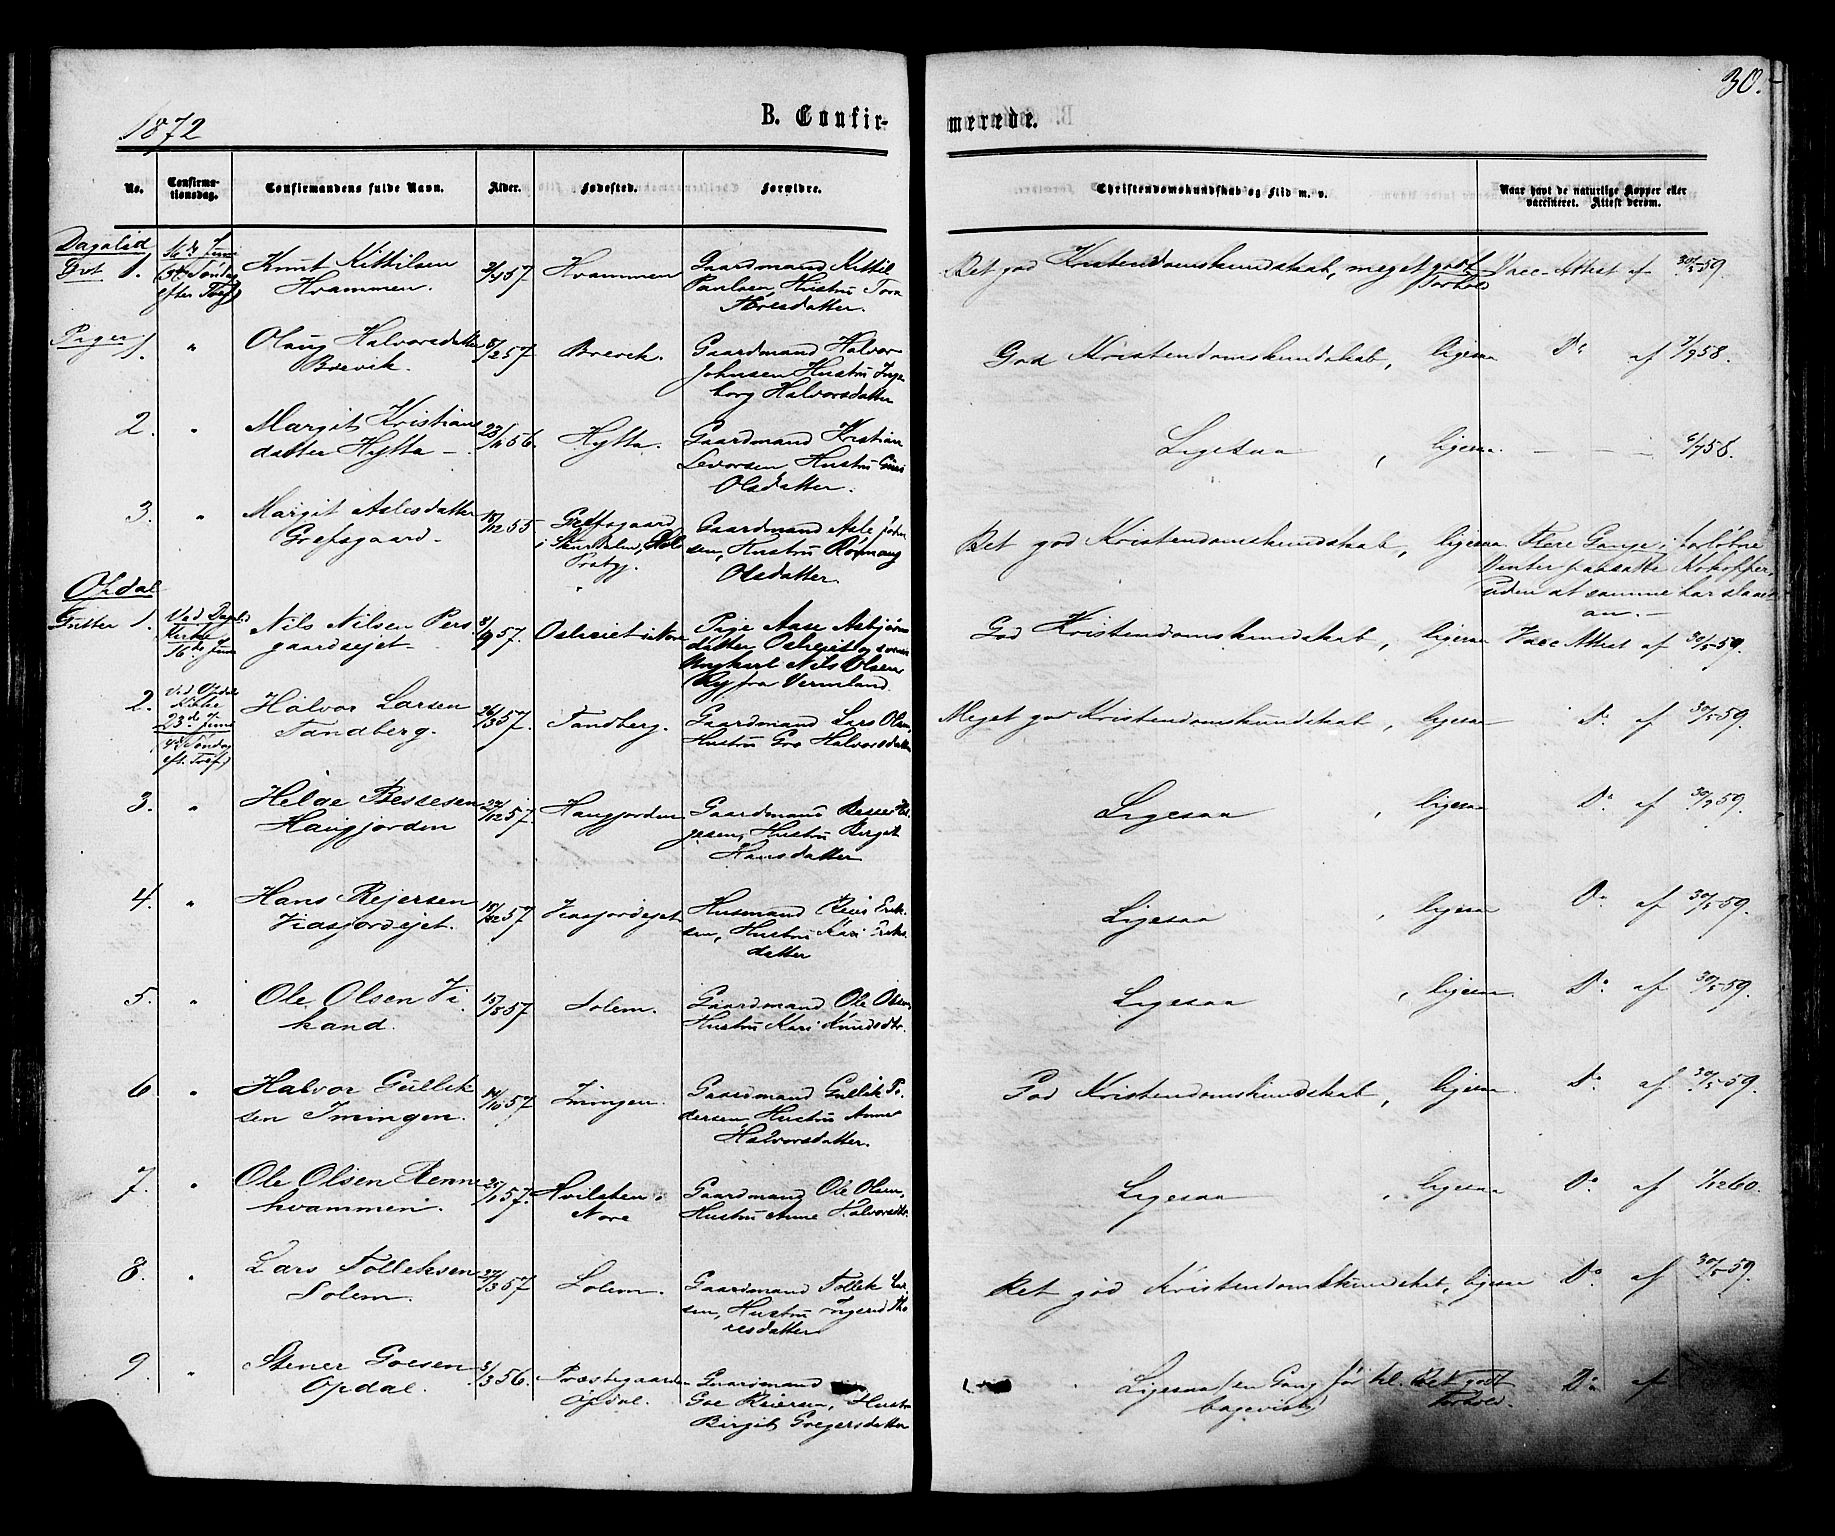 30.
1872
B. Confir-
merede.
No.
Confirma-
tionsdag.
Confirmandens fulde Navn.
Alder.
Fødested.
Forældre.
Christendomskundskab og Flid m. v.
Naar havt de naturlige Kopper eller
vaccineret. Attest derom.
Dagalid
1. 16de Juni
(3die Søndag
efter Tref.)
Knut Kittilsen
Hvammen.
57
Hvammen
Gaardmand Kittil
Paulsen, Hustru Tora
Toresdatter.
Ret god Kristendomskundskab, meget godt
Forhold
Vacc. Attest af 30/5 59.
Piger 1. "
Olaug Halvorsdatter
Brevik.
8/2 57.
Brevik.
Gaardmand Halvor
Johnsen Hustru Inge-
borg Halvorsdatter
God Kristendomskundskab, ligesaa Do af 7/9 58.
2. "
Margit Kristians
datter Hytta –
56.
Hytta.
Gaardmand Kristian
Levorsen Hustru Guri
Olsdatter.
Ligesaa, ligesaa. – – – 6/7 58.
3. "
Margit Aslesdatter
Grefsgaard.
18/12 55
Grefsgaard
i Skurdalen, Hol
Prstgj.
Gaardmand Asle John
sen, Hustru Rønnaug
Olsdatter.
Ret god Kristendomskundskab, ligesaa
Flere Gange i forløbne
Vinter paasatte Kokopper,
uden at samme har slaaet
an. –
Opdal
Gutter 1. Ved Dagalid
Kirke
16de Juni
Nils Nilsen Pers
gaardsejet.
8/9 57.
Oslseiet i Nore
Pige Aase Asbjørns
datter Oslseiet og
Ungkarl Nils Olsen
Ry fra Vermland.
God Kristendomskundskab, ligesaa Vacc Attest af 30/5 59.
2. Ved Opdals
Kirke
23de Juni
(4de Søndag
eft. Tref.)
Halvor Larsen
Tandberg.
26/3 57.
Tandberg.
Gaardmand Lars Olsen,
Hustru Gro Halvorsdatter
Meget god Kristendomskundskab, ligesaa Do af 30/5 59.
3. "
Helge Bessesen
Haugjorden
27/12 57.
Haugjorden
Gaardmand Besse Hel
gesen, Hustru Birgit
Hansdatter
Ligesaa, ligesaa Do af 30/9 59.
4. "
Hans Rejersen
Viasjordejet.
18/12 57
Viasjordejet
Husmand Reier Erik-
sen, Hustru Kari Eriks
datter
Ligesaa, ligesaa Do af 30/5 59.
5. "
Ole Olsen Vi
kand.
15/8 57
Solem.
Gaardmand Ole Olsen,
Hustru Kari Knudsdtr.
Ligesaa, ligesaa. Do af 30/5 59.
6 "
Halvor Gullik
sen Imingen.
14/10 57
Imingen.
Gaardmand Gullik To
dersen, Hustru Anne
Halvorsdatter.
God Kristendomskundskab, ligesaa. Do af 30/5 59.
7. "
Ole Olsen Renne
hvammen.
25/1 57.
Hvilsten i
Nore
Gaardmand Ole Olsen,
Hustru Anne Halvorsdtr.
Ligesaa, ligesaa Do af 1/12 60.
8. "
Lars Tolleksen
Solem.
27/3 57
Solem.
Gaardmand Tollek Lar
sen, Hustru Ingerid Tho
resdatter
Ret god Kristendomskundskab, ligesaa Do af 30/5 59.
9. "
Stener Goesen
Opdal.
3/3 56.
Præstegaarden
Opdal.
Gaardmand
Goe Reiersen, Hustru
Birgit Goegersdatter
Ligesaa (en Gang før hl. Ret godt
bagevist) Forhold.
Do af